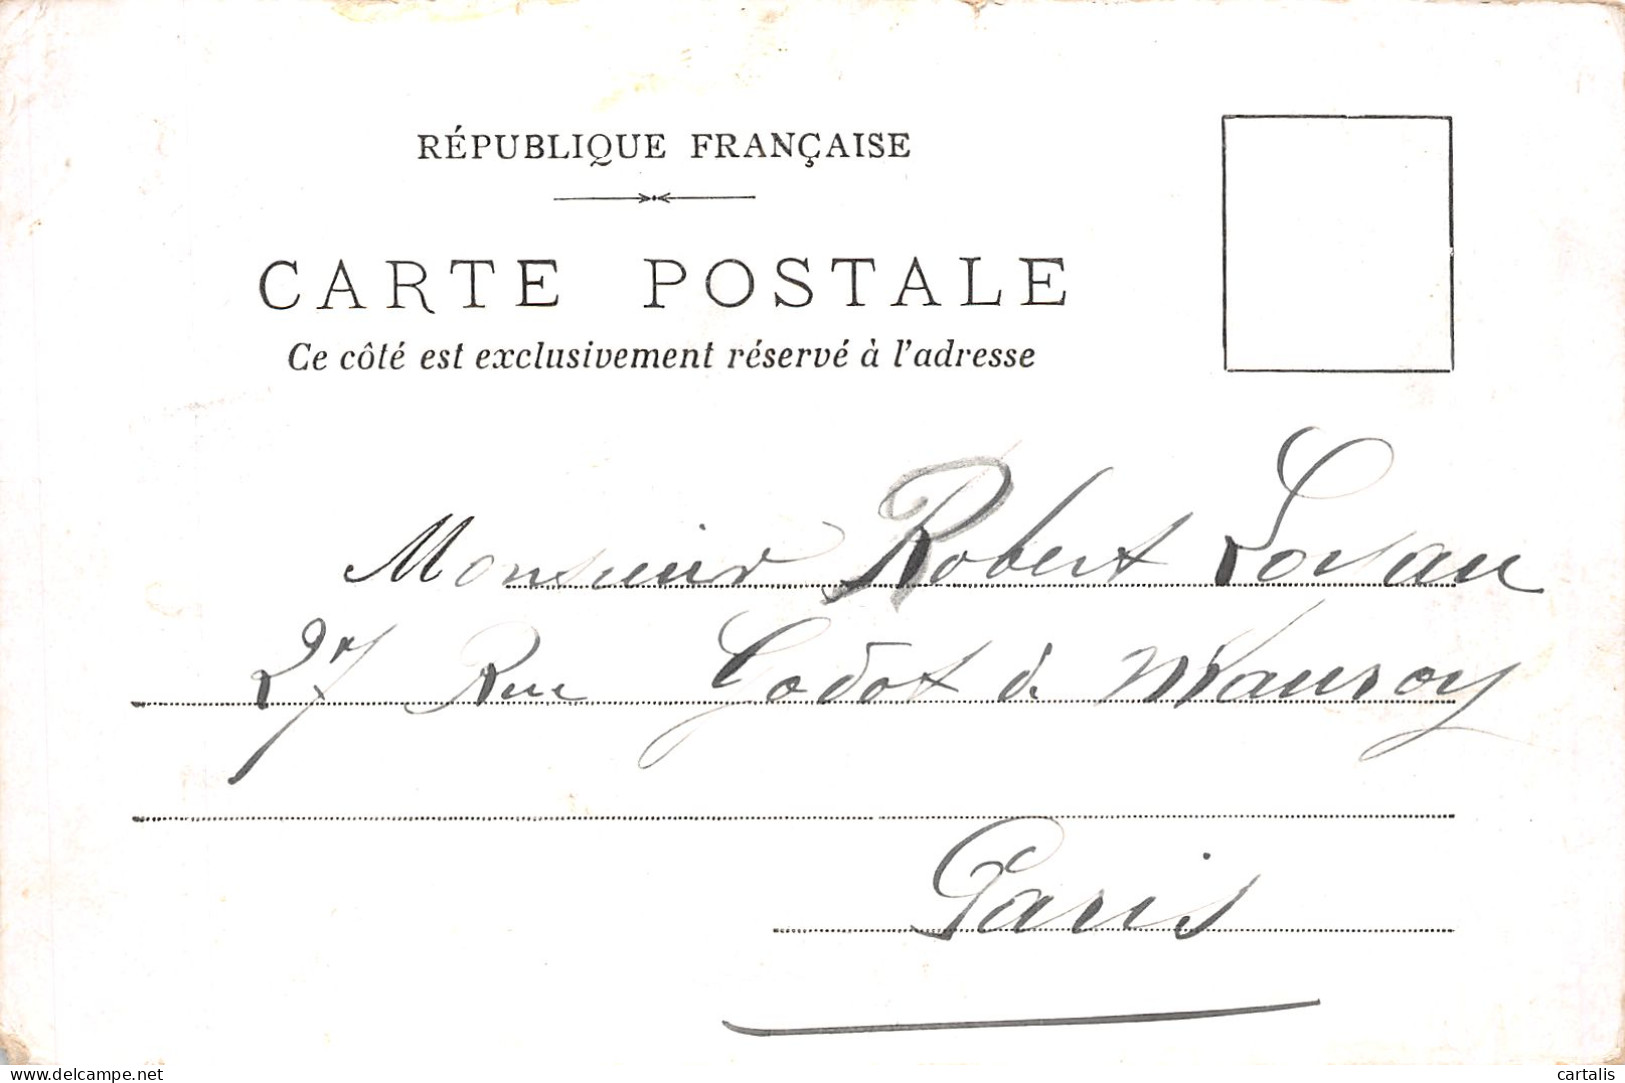 RÉPUBLIQUE FRANÇAISE
CARTE POSTALE
Ce côté est exclusivement réservé à l'adresse
Monsieur Robert
27 Rue Godot de Mauroy
Paris
delcampe.net
cartalis